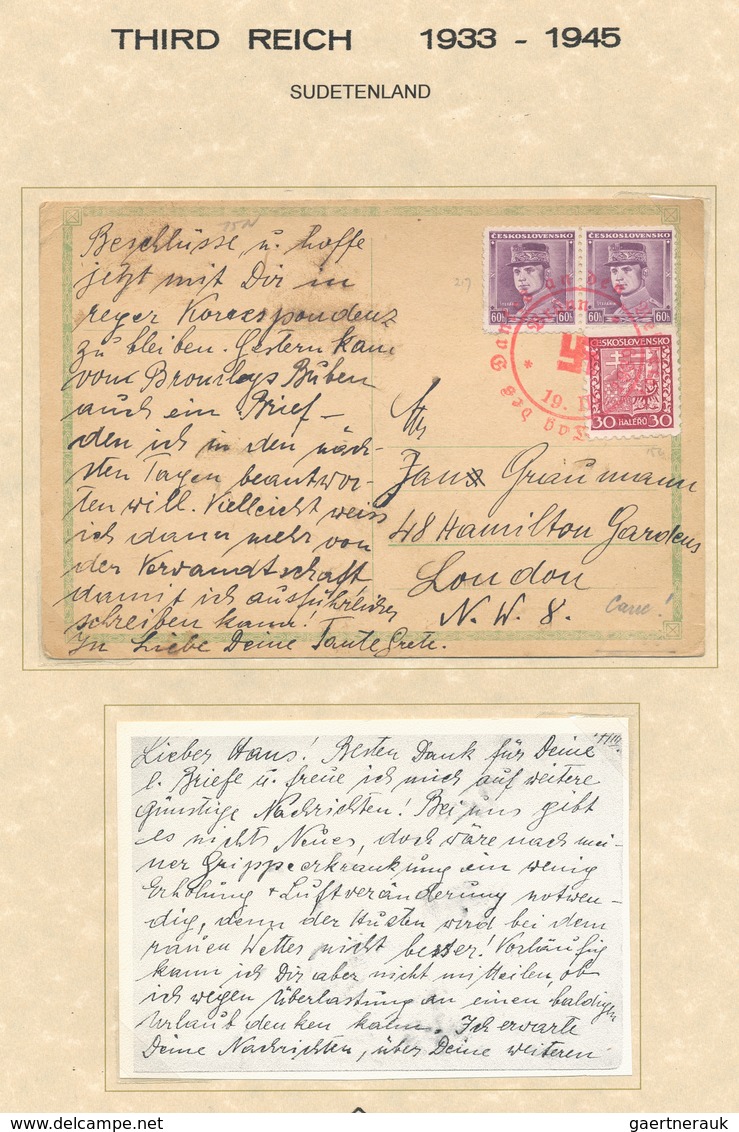 THIRD REICH 1933 - 1945
SUDETENLAND
Beschlüsse u. hoffe
jetzt mit Dir in
reger Korrespondenz
zu bleiben. Gestern kam
vom Bromleys Buben
auch ein Brief –
den ich in den näch-
sten Tagen beantwor-
ten will. Vielleicht weiss
ich dann mehr von
der Verwandtschaft
damit ich ausführlicher
schreiben kann!
In Liebe Deine Tante Grete.
217
ČESKOSLOVENSKO
60h 60h
ČESKOSLOVENSKO
60h 60h
ČESKOSLOVENSKO
30 HALÉŘŮ 30
19.
Hans Graumann
48 Hamilton Gardens
London
N. W. 8.
Lieber Hans! Besten Dank für Deine
l. Briefe u. freue ich mich auf weitere
günstige Nachrichten! Bei uns gibt
es nichts Neues, doch wäre nach mei-
ner Grippeerkrankung ein wenig
Erholung + Luftveränderung notwen-
dig, denn der Husten wird bei dem
rauen Wetter nicht besser! Vorläufig
kann ich Dir aber nicht mitteilen, ob
ich wegen Überlastung an einen baldigen
Urlaub denken kann. Ich erwarte
Deine Nachrichten, über Deine weiteren
www.delcampe.net
gaertnerauk